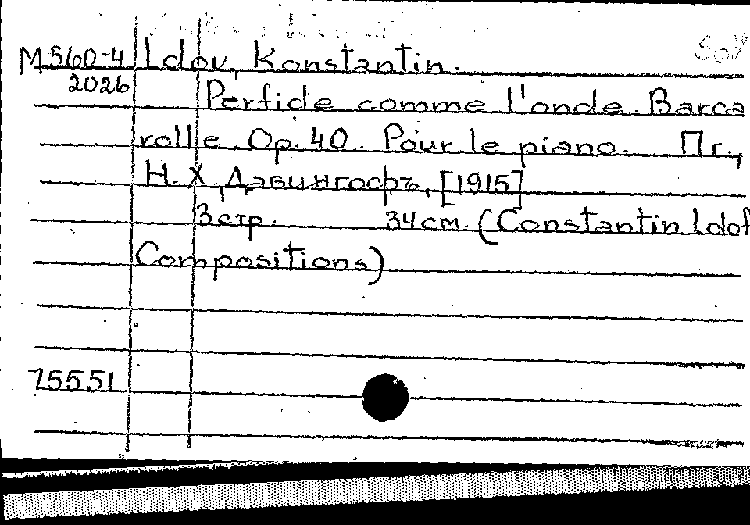 М560-4 Ldov, Konstantin.
2026 Perfide comme l'onde. Barca
rolle. Op. 40. Pour le piano. Пг.,
Н. Х. Давингофъ, [1915]
3 стр. 34 см. (Constantin Ldof
Compositions)
75551